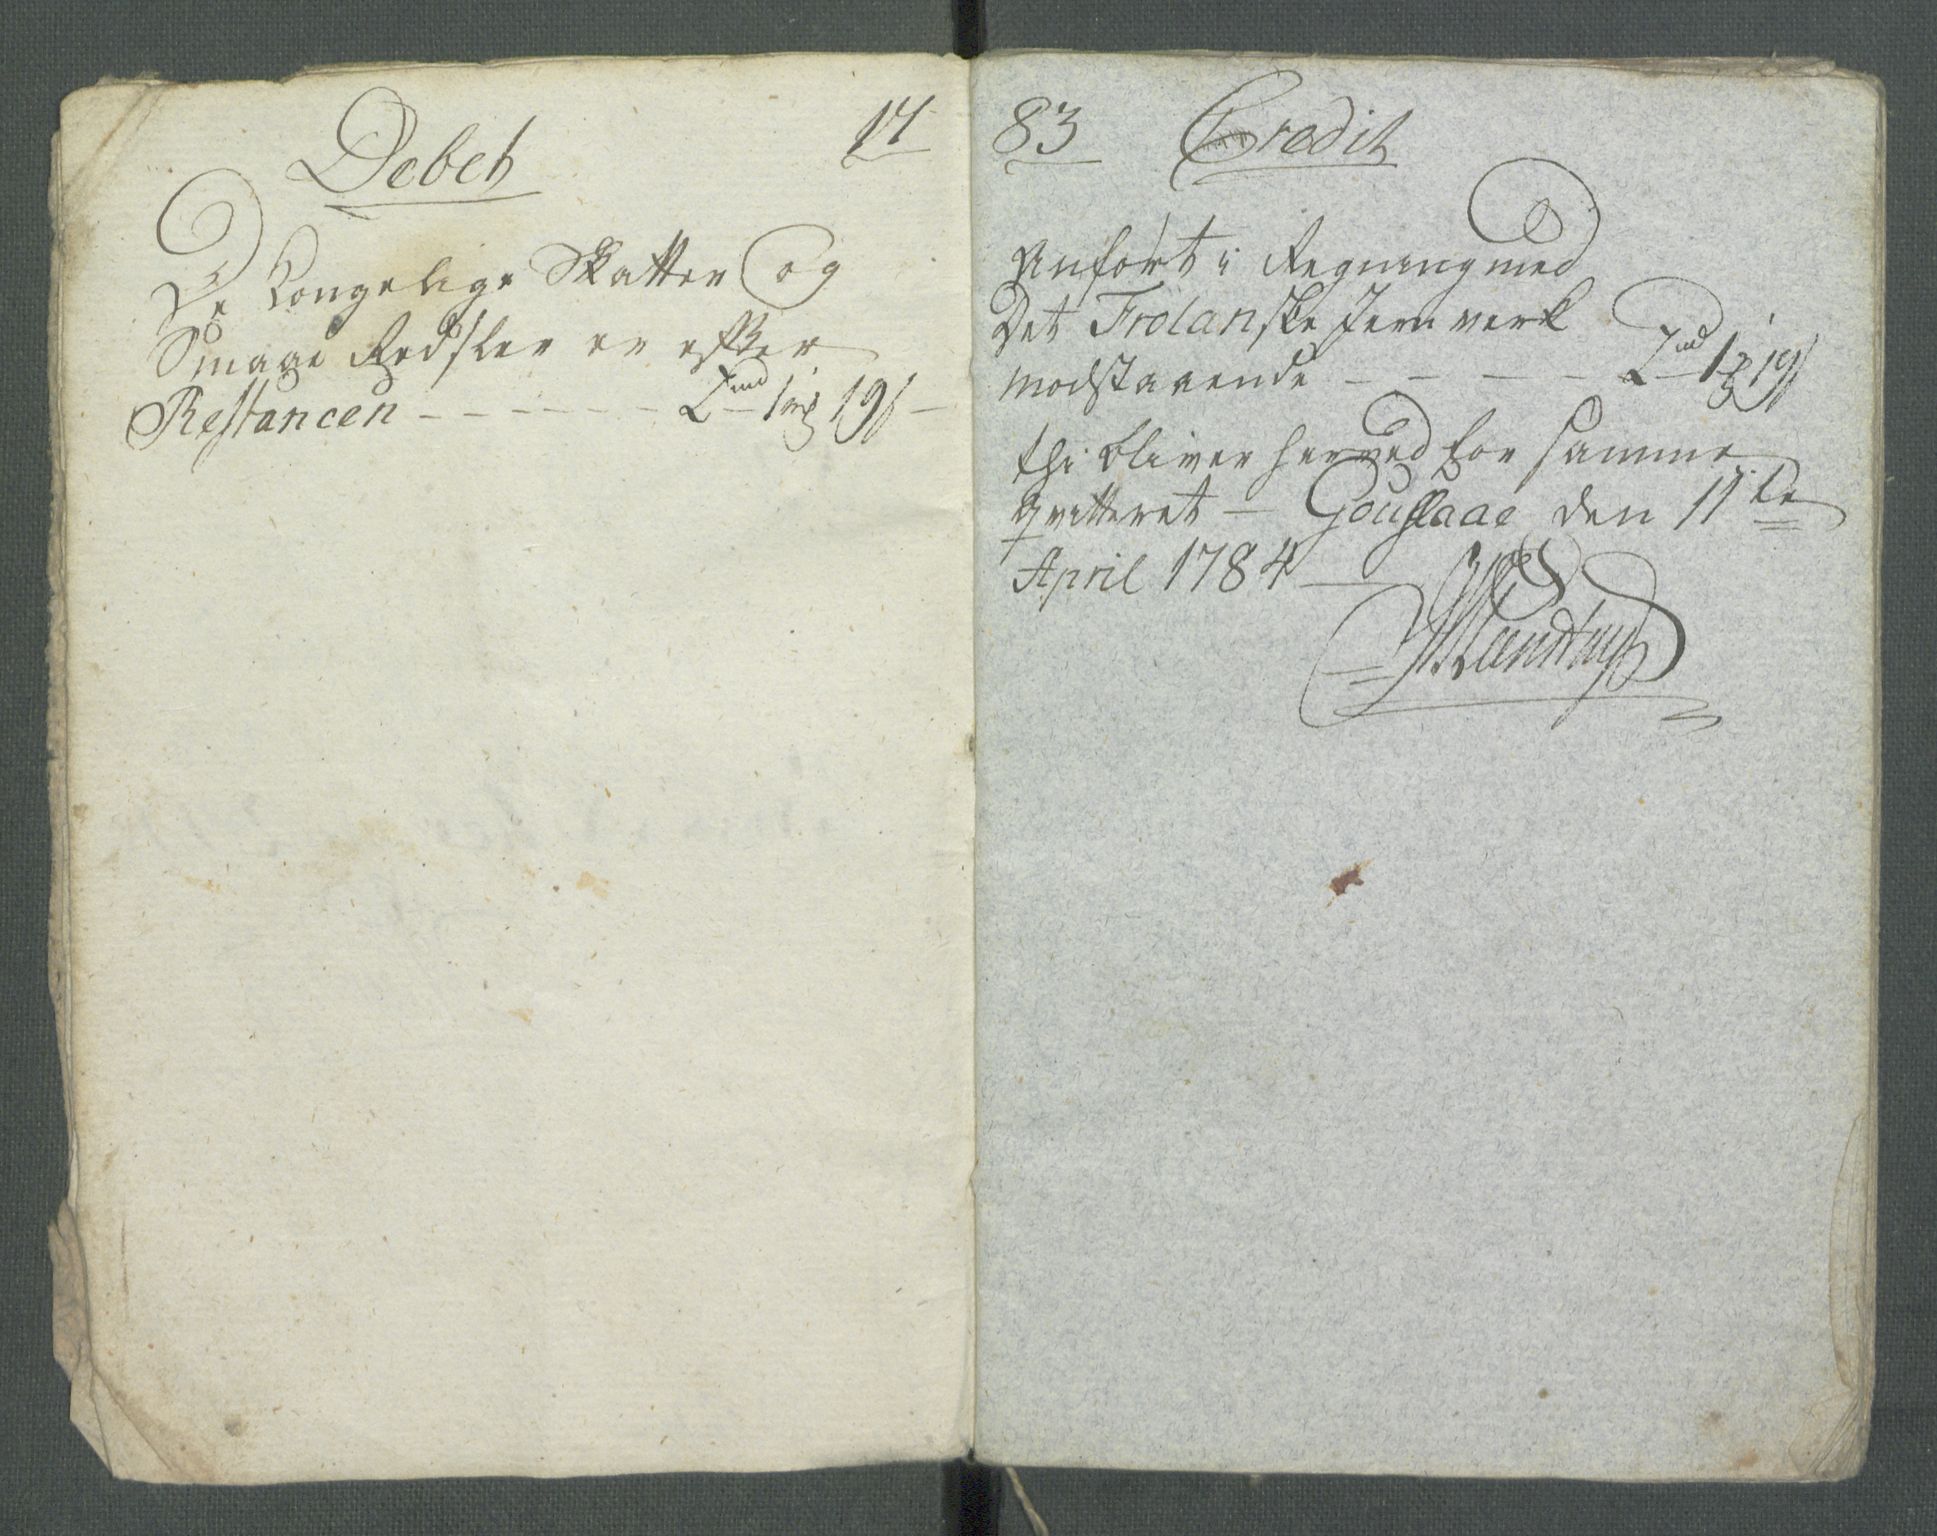 Debet 17
De Kongelige Skatter og
Smaae Redsler er efter
Restancen - - - - - - 2 md 1 mƶ 19 s -
83 Credit
Anført i Regning med
Det Frolanske Jern verk
modstaaende - - - - - 2 md 1 ƶ 19 s
thi bliver herved for samme
qvitteret - den 11te
April 1784